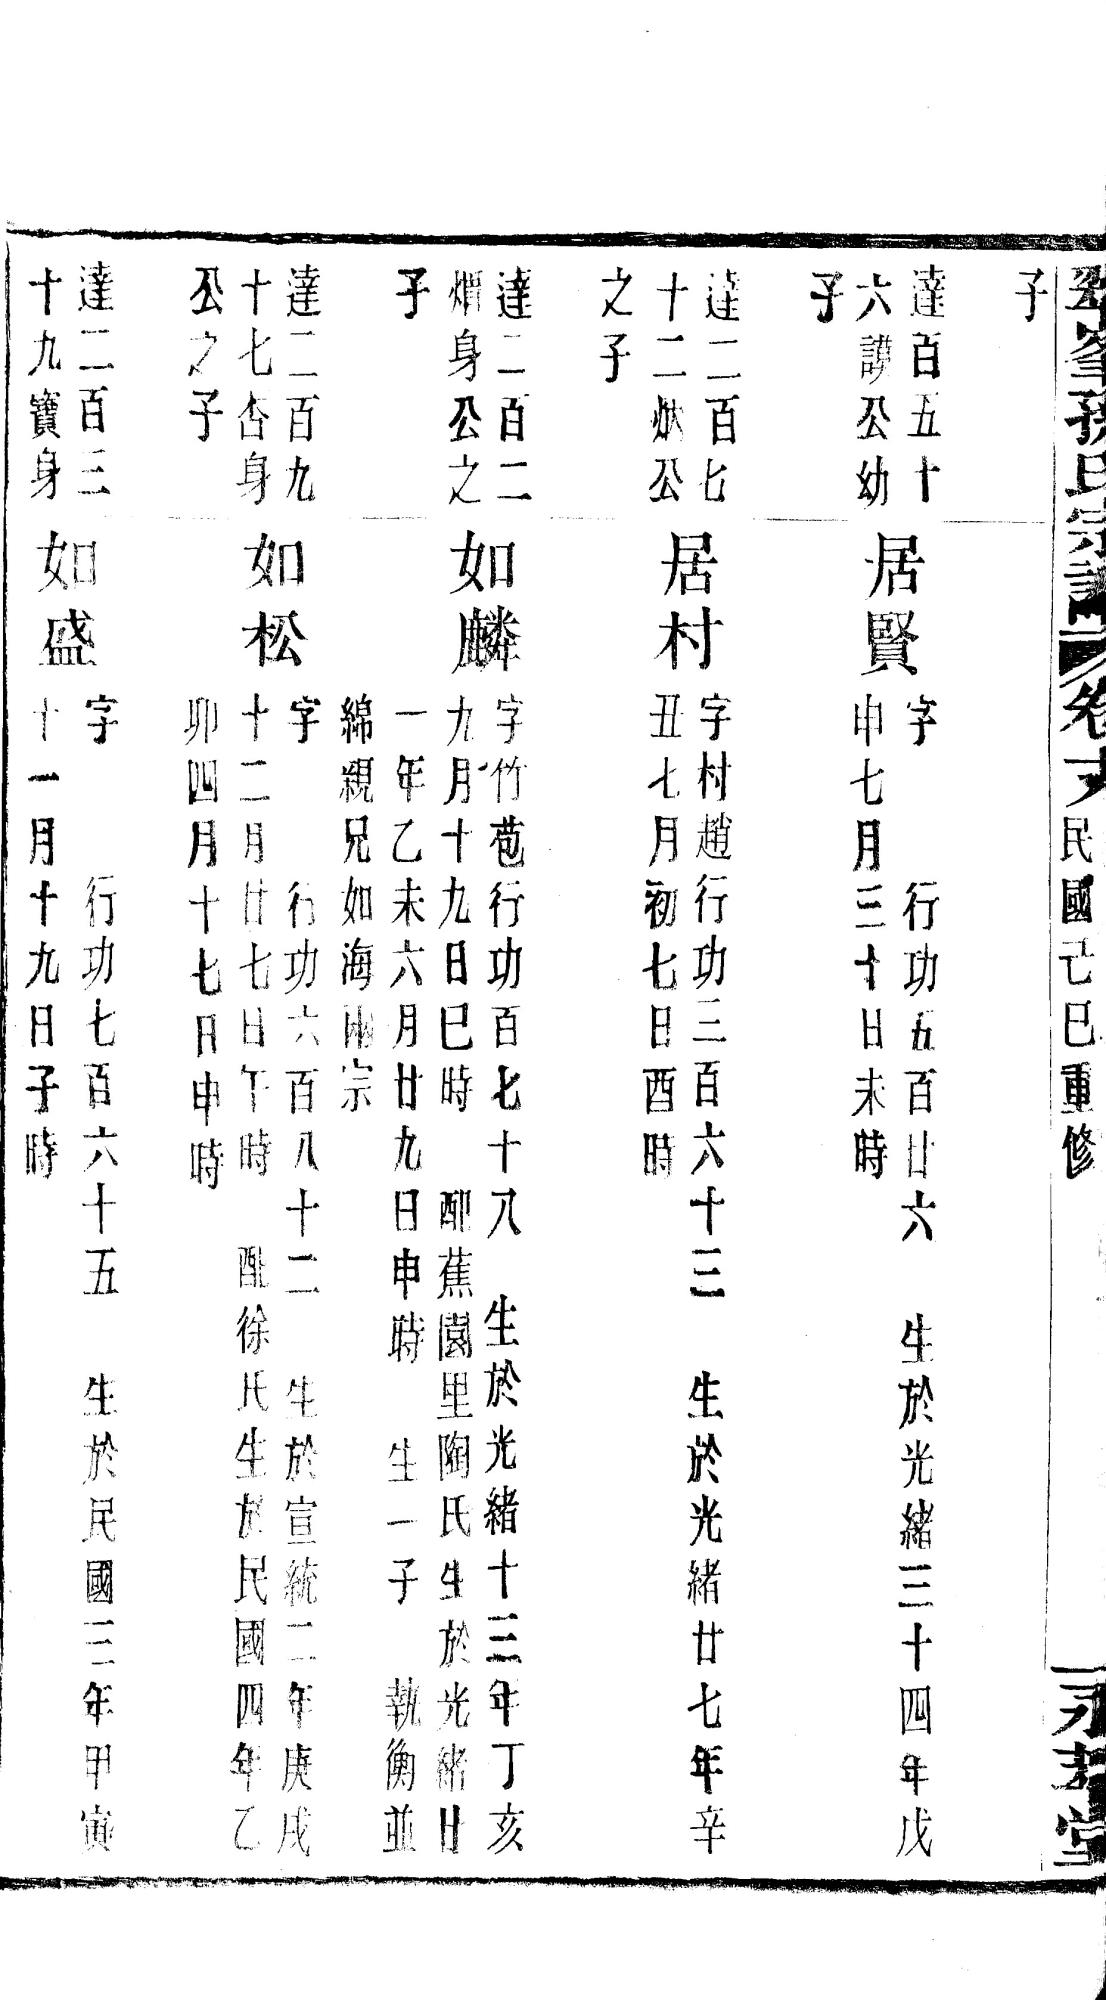 峯孫氏宗譜 卷 民國己巳重修 永孝堂
子
達百五十
六謨公幼
子
居賢
字 行功五百廿六 生於光緒三十四年戊
申七月三十日未時
達二百七
十二炏公
之子
居村
字村趙行功三百六十三 生於光緒廿七年辛
丑七月初七日酉時
達二百二
身公之
子
如麟
字竹苞行功百七十八 生於光緒十三年丁亥
九月十九日巳時 配蕉園里陶氏生於光緒廿
一年乙未六月廿九日申時 生一子 執衡並
綿親兄如海兩宗
達二百九
十七杏身
公之子
如松
字 行功六百八十二 生於宣統二年庚戌
十二月廿七日午時 配徐氏生於民國四年乙
卯四月十七日申時
達二百三
十九寶身
如盛
字 行功七百六十五 生於民國三年甲寅
十一月十九日子時